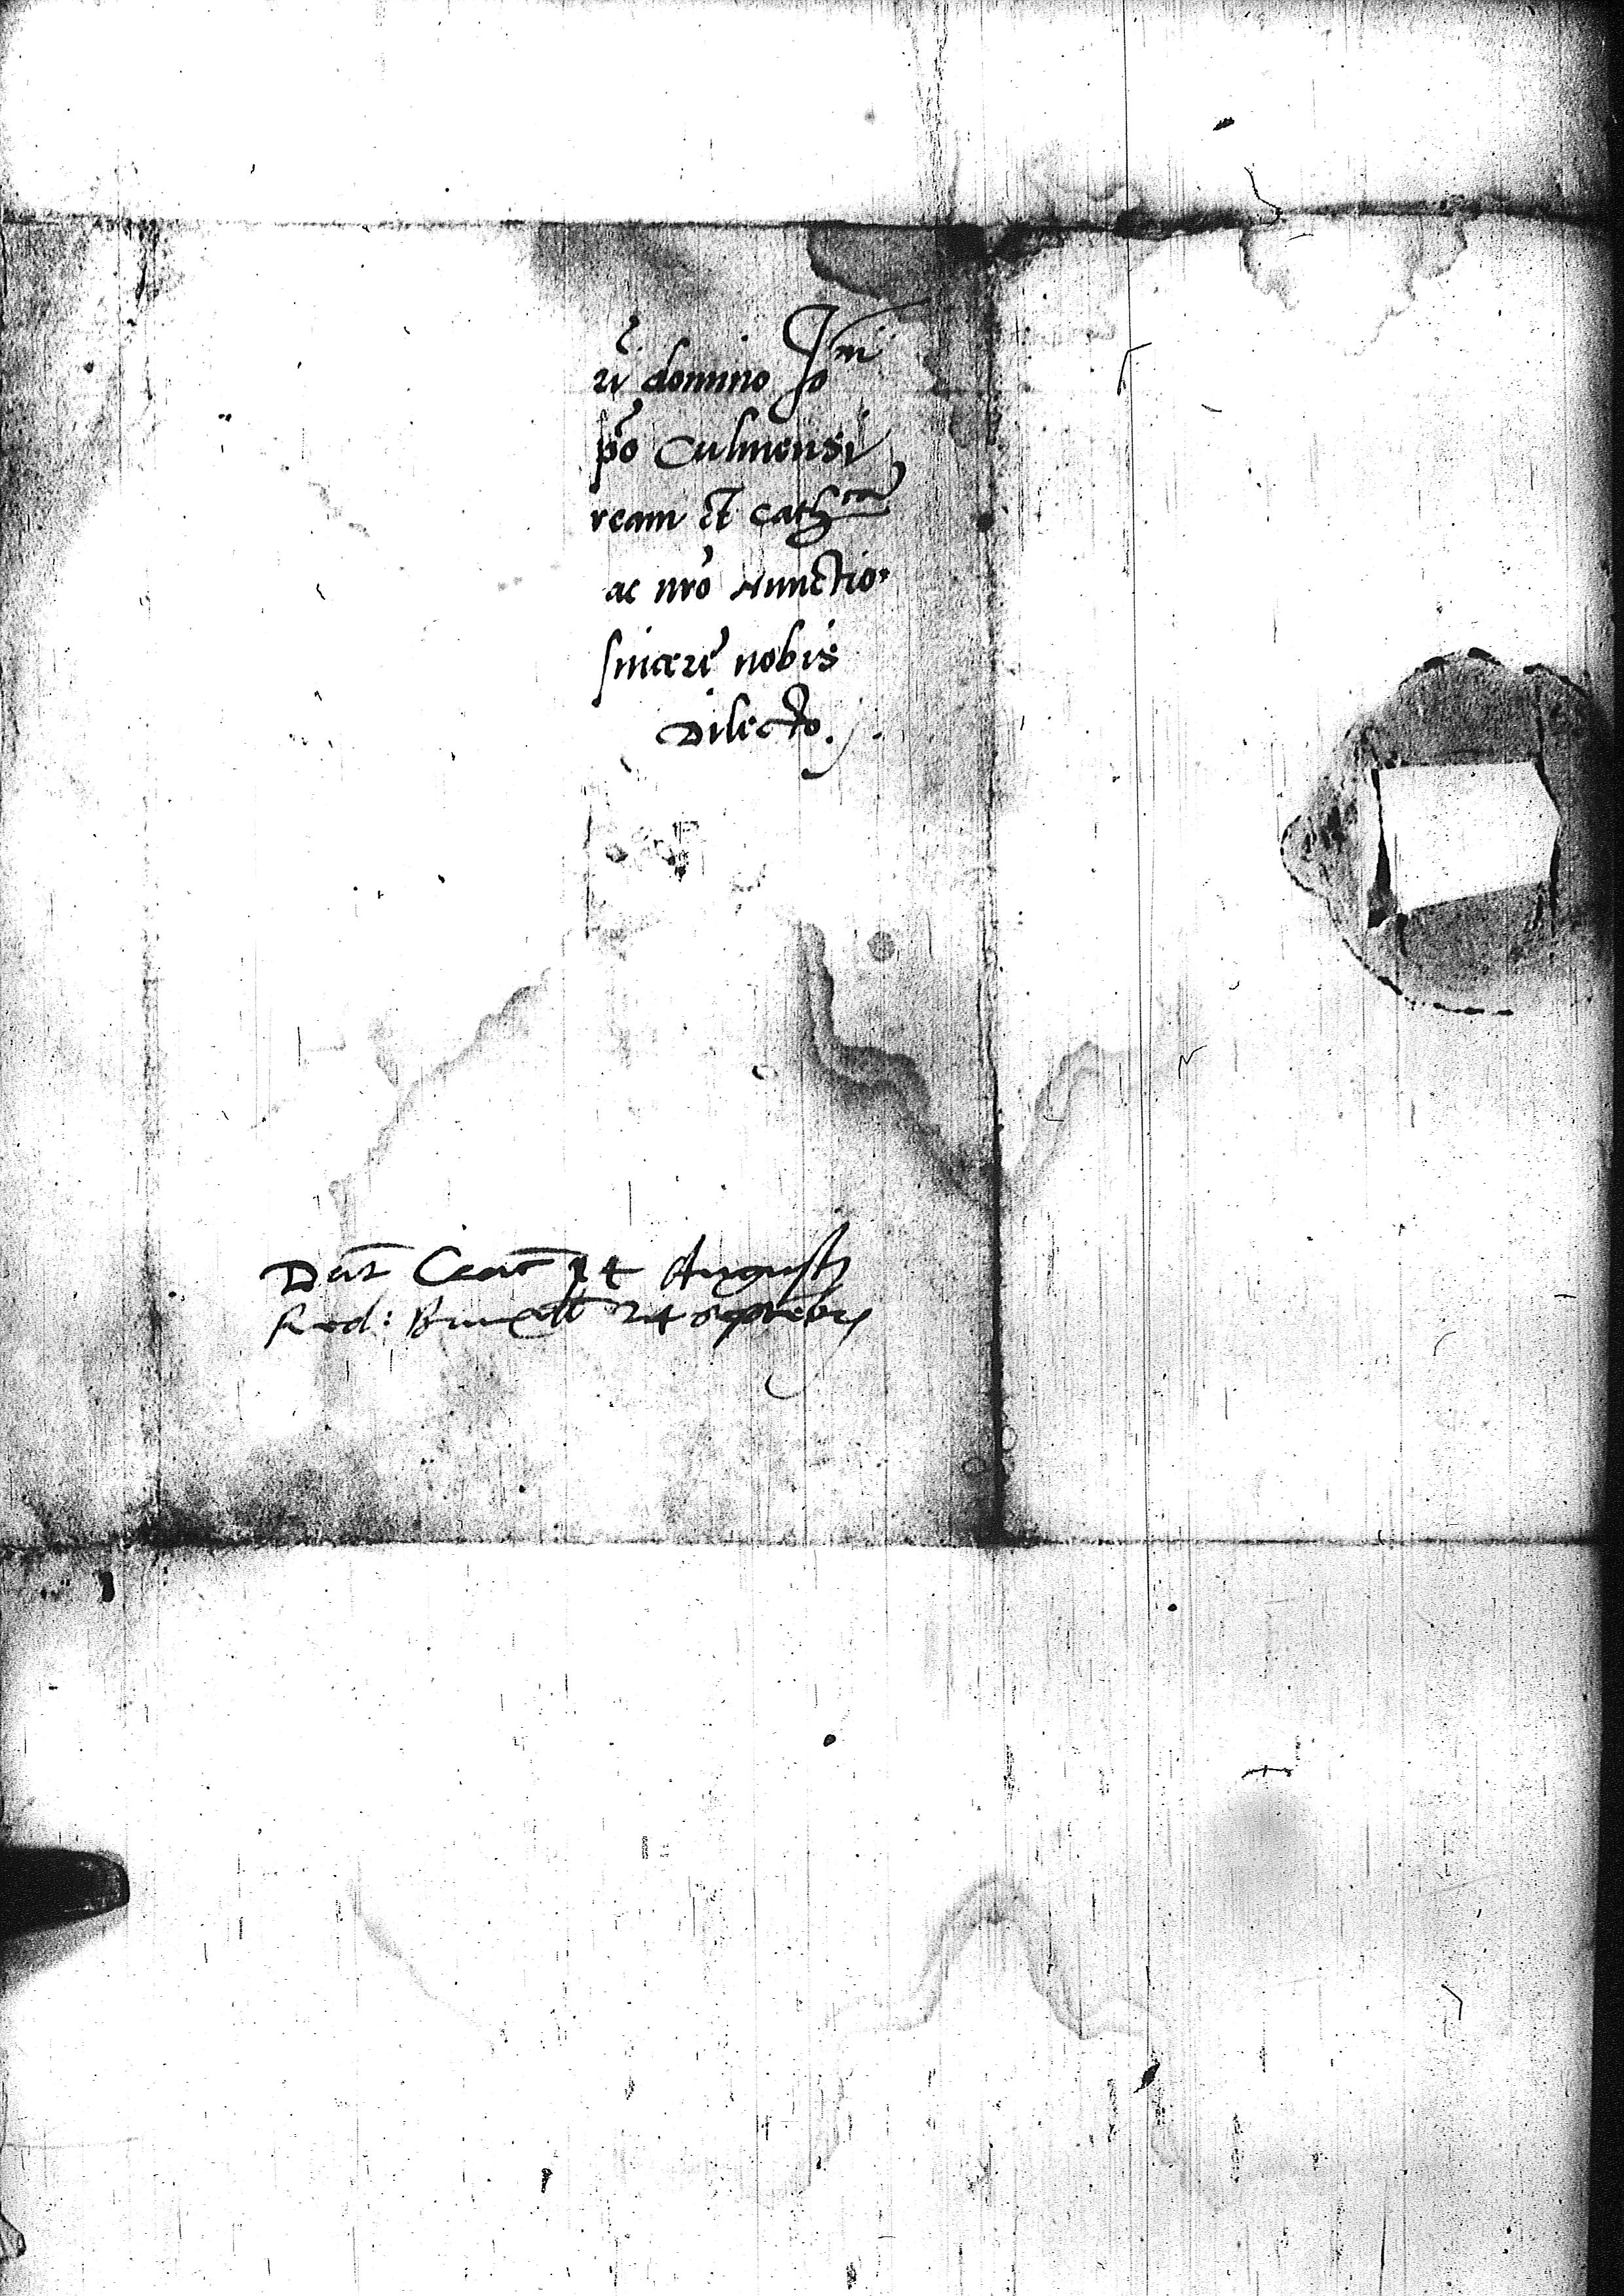 ri domino Jo
po Culmensi
ream et cath
ac nro Nunctio
sincere nobis
Dilecto.
Dat Crac 14 Augusti
Red: Bruxell 24 septembris